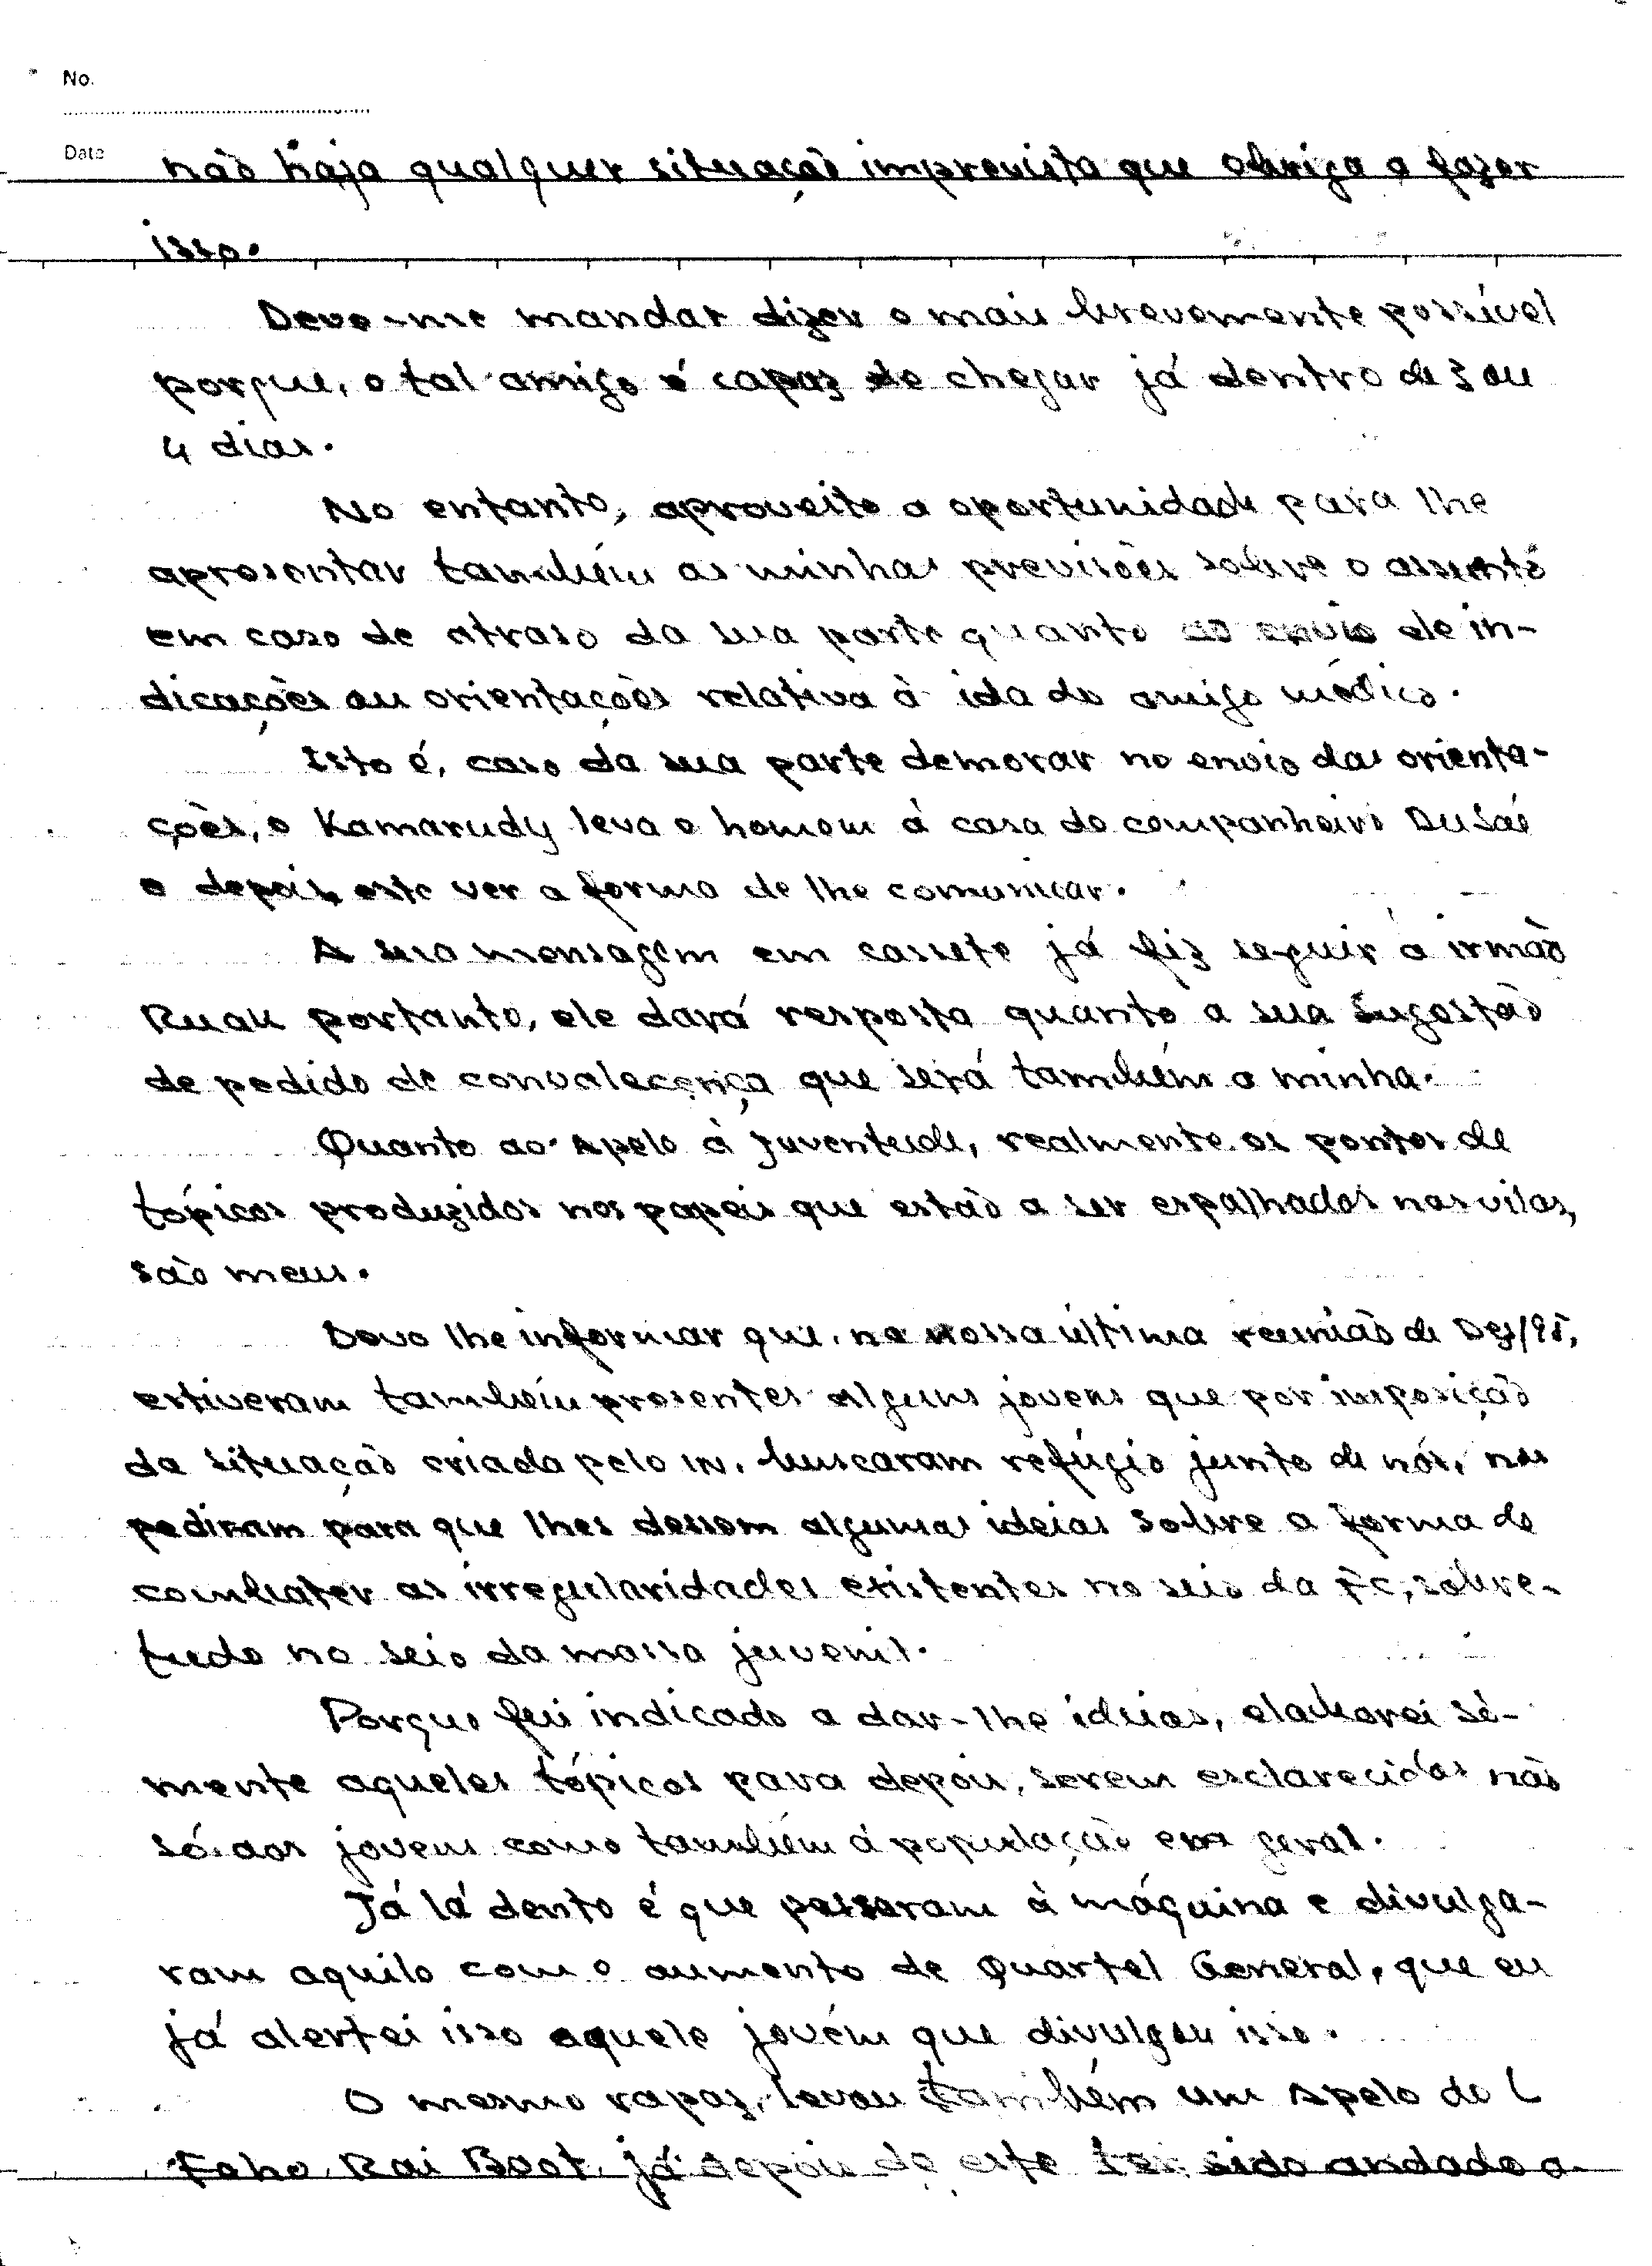 No.
Date
não haja qualquer situação imprevista que obriga a fazer
isso.
Deve-me mandar dizer o mais brevemente possível
porque, o tal amigo é capaz de chegar já dentro de 3 ou
4 dias.
No entanto, aproveito a oportunidade para lhe
apresentar também as minhas previsões sobre o assunto
em caso de atraso da sua parte quanto ao envio de in-
dicações ou orientações relativa à ida do amigo médico.
Isto é, caso da sua parte demorar no envio das orienta-
ções, o Kamarudy leva o homem à casa do companheiro
e depois este ver a forma de lhe comunicar.
A sua mensagem em cassete já fiz seguir a irmão
Ruak portanto, ele dará resposta quanto a sua sugestão
de pedido de convalecença que será também a minha.
Quanto ao Apelo à Juventude, realmente os pontos de
tópicos produzidos nos papeis que estão a ser espalhados nas vilas,
são meus.
Devo lhe informar que, na nossa última reunião de Dez/95,
estiveram também presentes alguns jovens que por imposição
da situação criada pelo in. buscaram refúgio junto de nós, nos
pediram para que lhes dessem algumas ideias sobre a forma de
combater as irregularidades existentes no seio da Fc, sobre-
tudo no seio da massa juvenil.
Porque fui indicado a dar-lhe ideias, elaborei sò-
mente aqueles tópicos para depois, serem esclarecidos não
só aos jovens como também à população em geral.
Já lá dento é que passaram à máquina e divulga-
ram aquilo com o aumento de Quartel General, que eu
já alertei isso aquele jovém que divulgou isso.
O mesmo rapaz, levou também um Apelo do L
Foho Rai Boot, já depois de este ter sido andado a